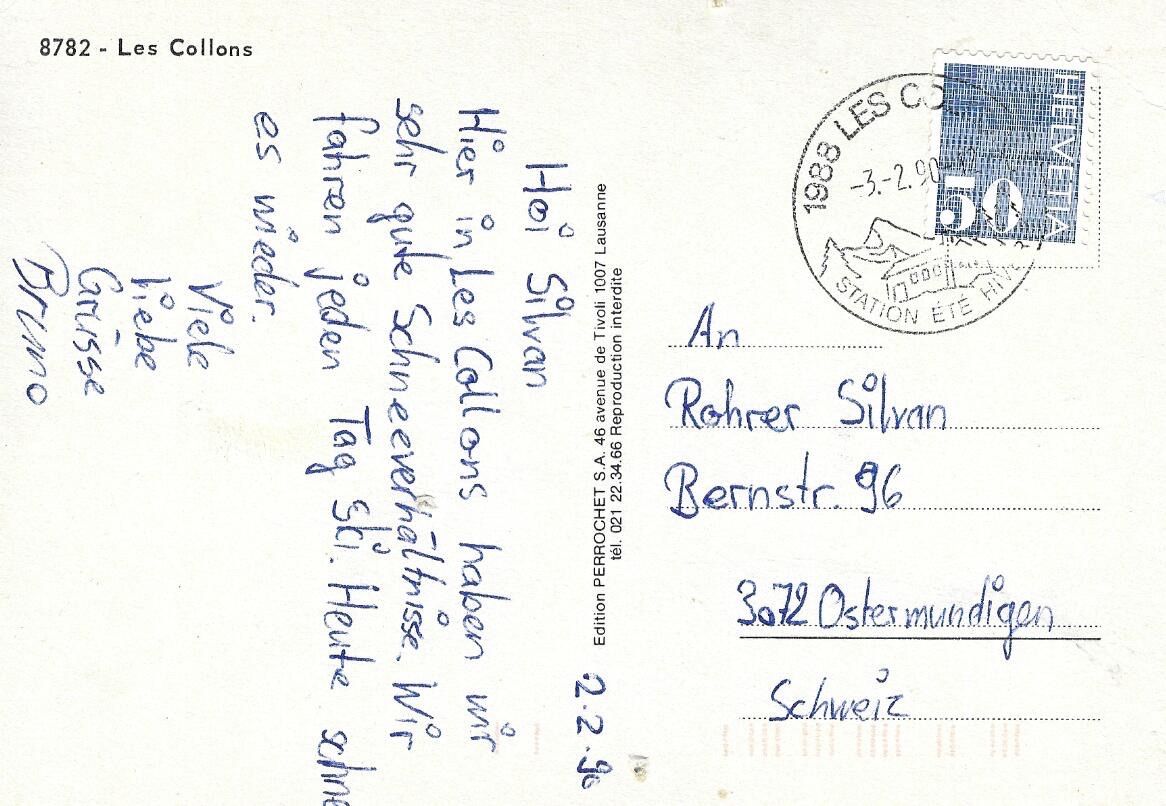 8782 - Les Collons
2.2.90
Hoi Silvan
Hier in Les Collons haben wir
sehr gute Schneeverhältnisse. Wir
fahren jeden Tag ski. Heute schne
es wieder.
Viele
Liebe
Grüsse
Bruno
Edition PERROCHET S.A. 46 avenue de Tivoli 1007 Lausanne
tél. 021 22.34.66 Reproduction interdite
1988 LES CO
-3.-2.90
STATION ÉTÉ HIV
HELVETIA
50
An
Rohrer Silvan
Bernstr. 96
3072 Ostermundigen
Schweiz